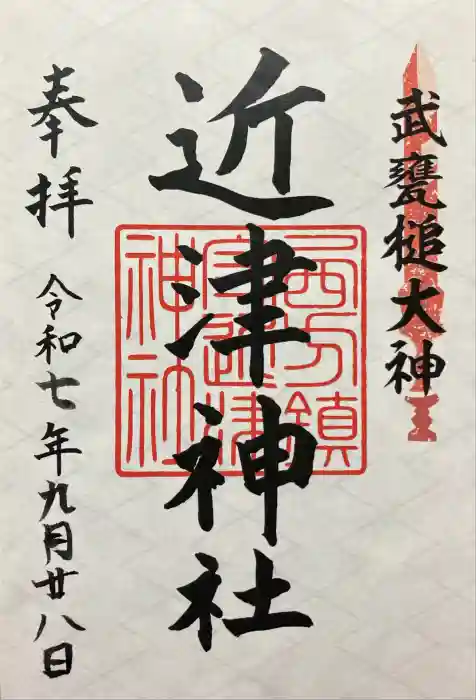 武甕槌大神
近津神社
西方鎮
守近津
神社
奉拝
令和七年九月廿八日